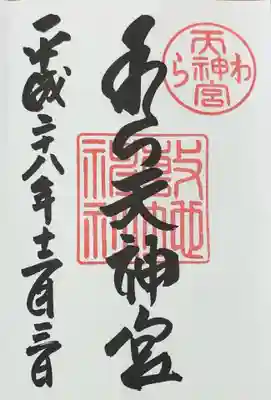 わら天神宮
わら天神宮
敷地
神社
平成二十八年十二月三日